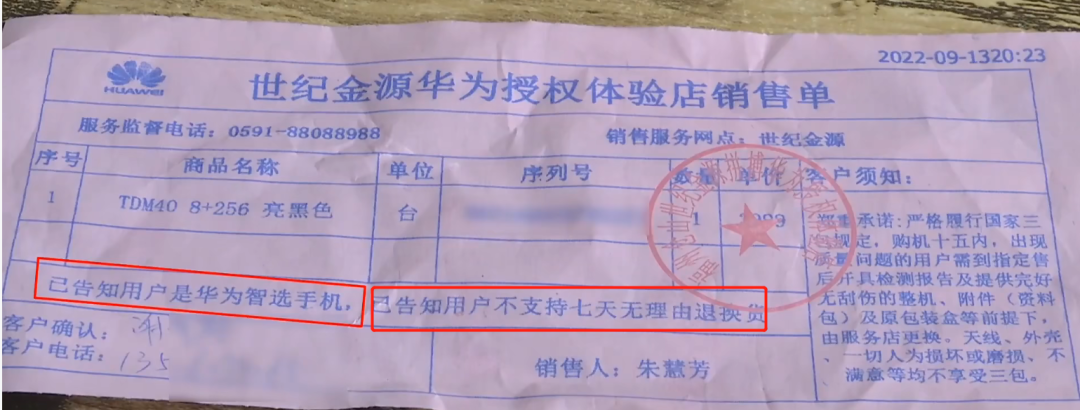 2022-09-1320:23
HUAWEI
世纪金源华为授权体验店销售单
服务监督电话：0591-88088988 销售服务网点：世纪金源
序号 商品名称 单位 序列号 数量 单价 客户须知：
1 TDM40 8+256 亮黑色 台 1
郑重承诺:严格履行国家三
包规定，购机十五内，出现
质量问题的用户需到指定售
后开具检测报告及提供完好
无刮伤的整机、附件（资料
包）及原包装盒等前提下，
由服务店更换。天线、外壳
、一切人为损坏或磨损、不
满意等均不享受三包。
已告知用户是华为智选手机，已告知用户不支持七天无理由退换货
客户确认：
客户电话：135
销售人：朱慧芳